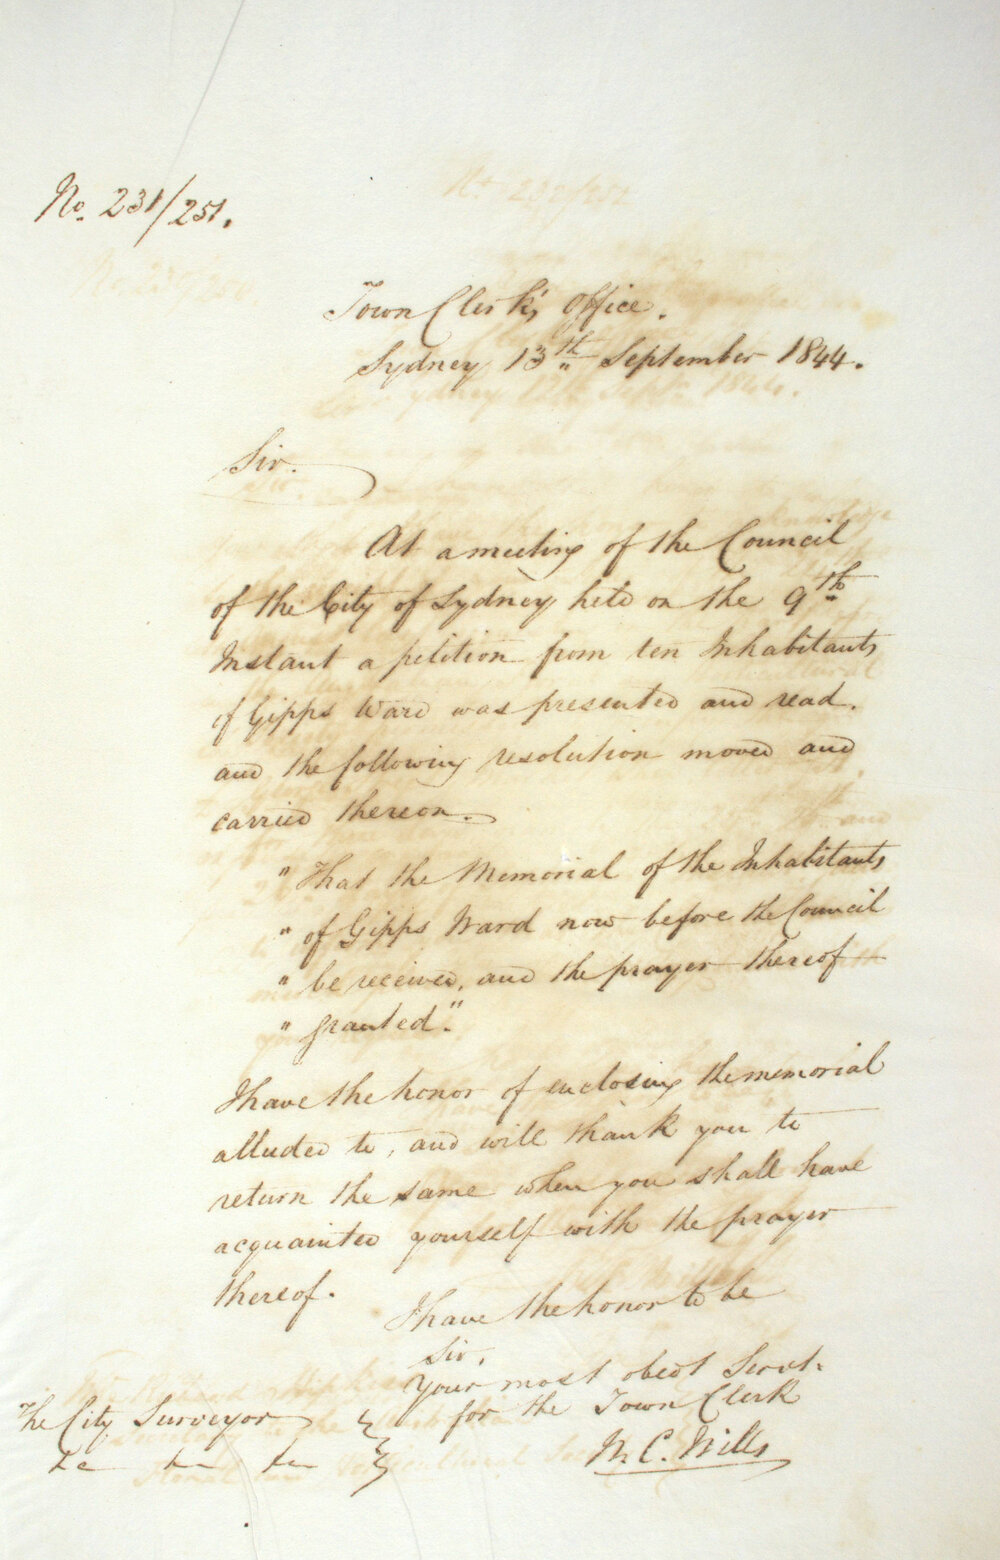 No. 231/251.
Town Clerk's Office.
Sydney 13th September 1844.
Sir.
At a meeting of the Council
of the City of Sydney held on the 9th
Instant a petition from ten Inhabitants
of Gipps Ward was presented and read.
and the following resolution moved and
carried thereon.
" That the Memorial of the Inhabitants
" of Gipps Ward now before the Council
" be received, and the prayer thereof
" granted."
I have the honor of enclosing the memorial
alluded to, and will thank you to
return the same when you shall have
acquainted yourself with the prayer
thereof.
I have the honor to be
Sir,
Your most obedt Servt.
for the Town Clerk
The City Surveyor
W. C. Wills